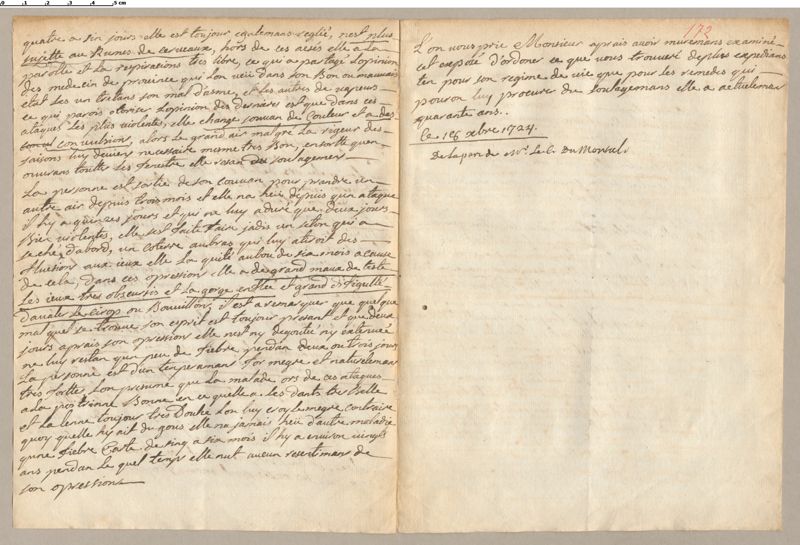 quatre a sin jours elle est toujour egalemans reglée, n'est plus
sujette au Rumes de cerveaux, hors de ces accés elle a La
parolle et La respirations tres libre, ce qui a partagé Lopinion
des medecin de province qui Lon veüe dans son Bon ou mauvais
etat Les un tretans son mal d'asme, et Les autres de vapeurs
ce qui parois otoriser Lopinion des dernieres est que dans ces
ataques Les plus violentes, elle change souvan de Couleur et a des
convulsions, alors Le grand air malgré La rigeur des
saisons Luy devien necessaire mesme tres Bon, ensorte quen
ouvrans toutte Les fenestre elle resan du soulagemen
La personne est sortie de son Couvan pour prandre un
autre air depuis trois mois et elle na heü depuis qu'un ataque
il h'y a quinzes jours et qui ne luy a duré que deux jours
Bien violentes, elle s'est faite faire jadis un seton qui a
seché d'abord, un coterre au bras qui luy atiroit des
fluxion aux ieux elle La quité au bou de six mois a cause
de cela, dans ces opression elle a des grand maux de teste
Les ieux tres obscursis et La gorge enflée et grand difigulté
d'avaler Le cirop ou Boüillon, il est a remarquer que quelque
mal que se trouve son esprit est toujour presant et que deux
jours aprais son opressions elle n'est ny degoutée ny extenuée
ne luy restan qu'un peu de fiebre pendan deux ou trois jours
La personne est d'un temperamans for megre et naturelemans
tres fortte, Lon presume que La malade ors de ces ataques
a La poittrinne Bonne en ce quelle a Les dants tres Belle
et La lenne toujour tres Douce Lon luy croy Le megre contraire
quoy quelle h'y ait du gous elle na jamais heü d'autre maladie
qu'une fiebre Carte de sinq a six mois il h'y a environ vingt
ans pendan Le quel temps elle n'ut aucun resentimans de
son opressions
173
L'on vous prie Monsieur aprais avoir murremans examiné
cet exposé d'ordoner ce que vous trouveré de plus expedians
ten pour son regime de vie que pour Les remedes qui
pouron luy procurer du soulagemans elle a actuelemans
quarante ans..
Ce 16 xbre 1724.
De La par de Mr. Le C. Du Monsel.